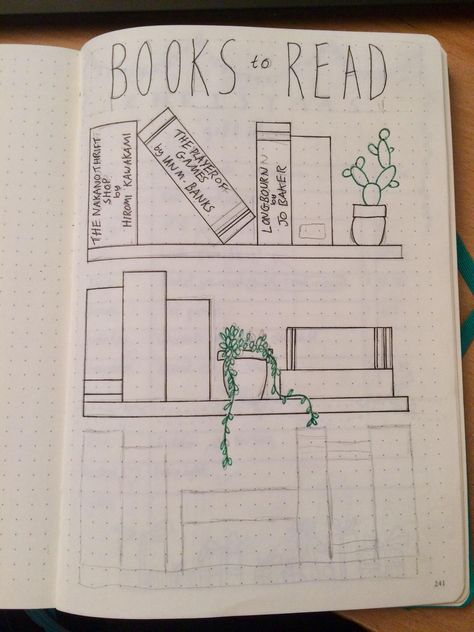 BOOKS to READ
THE NAKANO THRIFT
SHOP
by
HIROMI KAWAKAMI
THE PLAYER OF
GAMES
by IAN M. BANKS
LONGBOURN
by
JO BAKER
241